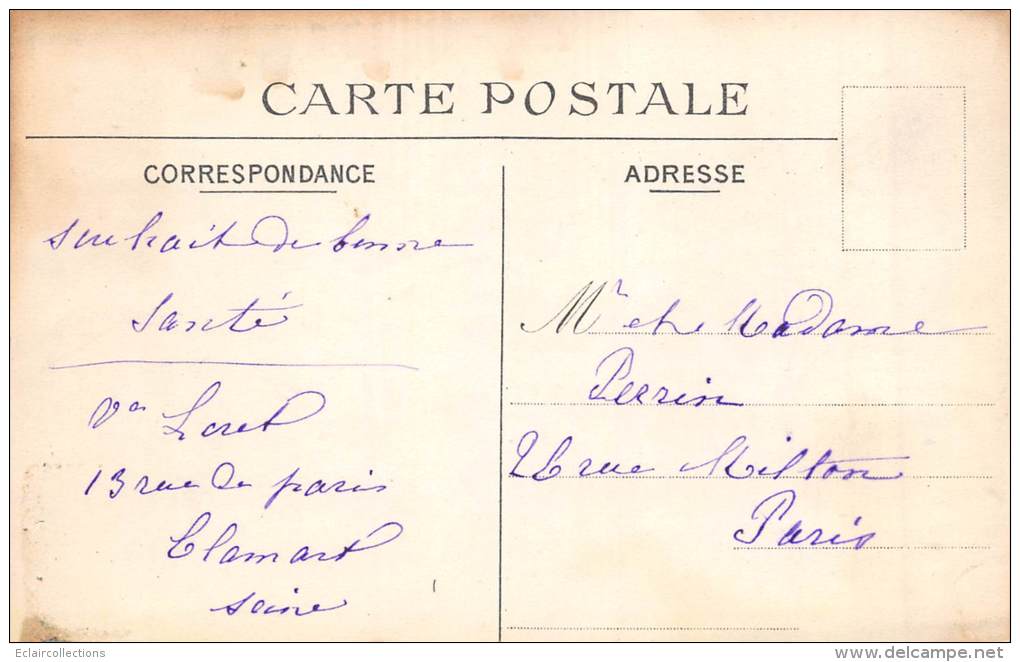 CARTE POSTALE
CORRESPONDANCE
souhait de bonne
Santé
Vve Loret
13 rue de paris
Clamart
seine
ADRESSE
Mr et Madame
Perrin
26 rue Milton
Paris
Eclaircollections
delcampe.net